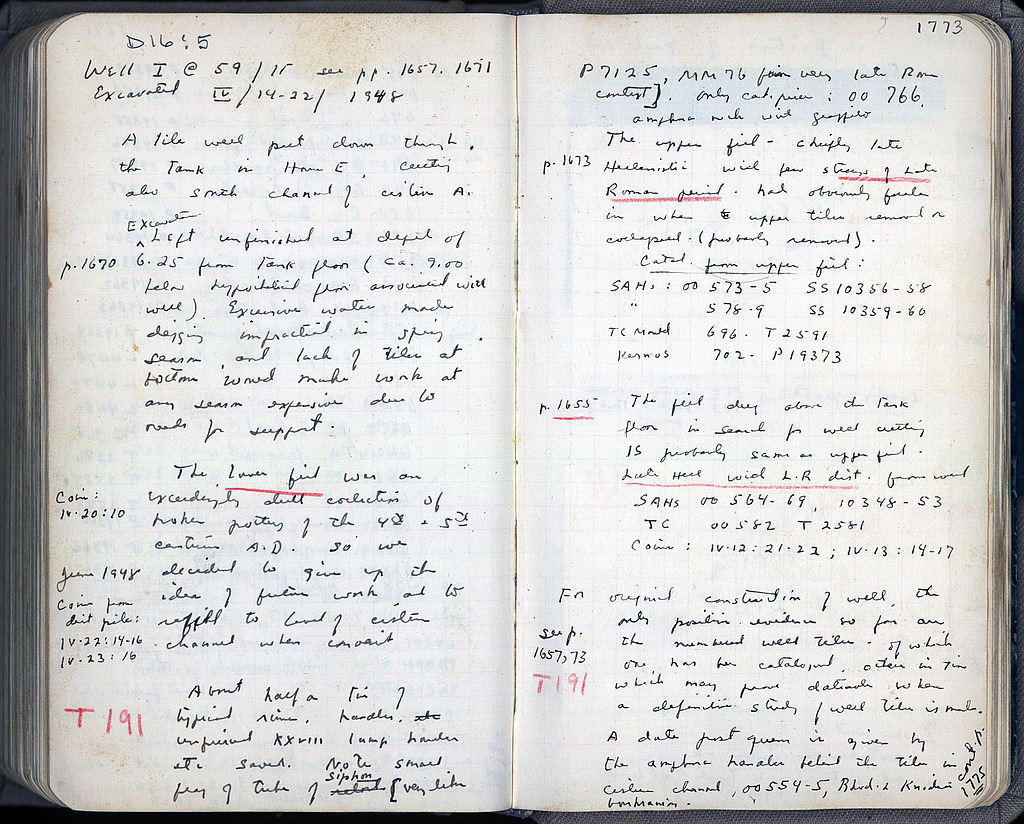 D16:5
Well I @ 59/15 see pp. 1657, 1671
Excavated IV/14-22/ 1948
A tile well put down through
the Tank in House E, cutting
also south channel of cistern A.
Excavation
Left unfinished at depth of
p. 1670 6.25 from Tank floor (ca. 9.00
below floor associated with
well). Excessive water made
digging impractical in spring
season and lack of tiles at
bottom would make work at
any season expensive due to
needs for support.
The lower fill was an
Coin: exceedingly dull collection of
IV-20:10 broken pottery of the 4th & 5th
centuries A.D. So we
June 1948 decided to give up the
Coins from idea of further work and to
dirt pile: refill to level of cistern
IV-22:14-16 channel when convenient
IV-23:16
About half a tin of
T 191 typical rims, handles,
unglazed XXVIII lamp handle
etc saved. Note small
siphon
frag of tube of [very like
1773
P7125, MM76 from very late Roman
context]. Only cat. piece: OO 766,
amphora neck with graffito
The upper fill - chiefly late
p. 1673 Hellenistic with few strays of Late
Roman period. had obviously fallen
in when upper tiles removed or
collapsed. (probably removed).
Catal. from upper fill:
SAHs: OO 573-5 SS 10356-58
" 578-9 SS 10359-60
TC mould 696. T 2591
Kernos 702- P19373
p. 1655 The fill dug above the Tank
floor in search for well cutting
is probably same as upper fill.
Late Hell with L.R dist. from well
SAHs OO 564-69, 10348-53
TC OO 582 T 2581
Coins: IV-12:21-22; IV-13:14-17
For original construction of well, the
only positive evidence so far are
see p. the numbered well tiles - of which
1657,73 one has been catalogued, others in tin
T 191 which may prove dateable when
a definitive study of well tiles is made.
A date post quem is given by
the amphora handles behind the tiles in
cistern channel, OO 554-5, Rhod. & Knidian
cont. p.
1775